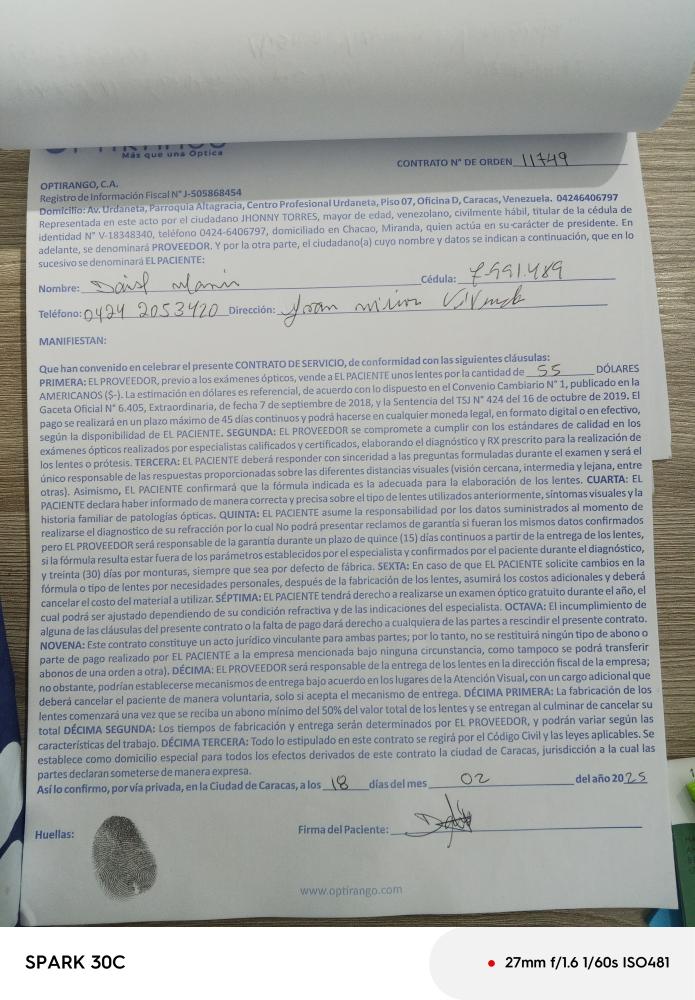 Más que una Óptica
CONTRATO N° DE ORDEN 11749
OPTIRANGO, C.A.
Registro de Información Fiscal N° J-505868454
Domicilio: Av. Urdaneta, Parroquia Altagracia, Centro Profesional Urdaneta, Piso 07, Oficina D, Caracas, Venezuela. 04246406797
Representada en este acto por el ciudadano JHONNY TORRES, mayor de edad, venezolano, civilmente hábil, titular de la cédula de
identidad N° V-18348340, teléfono 0424-6406797, domiciliado en Chacao, Miranda, quien actúa en su carácter de presidente. En
adelante, se denominará PROVEEDOR. Y por la otra parte, el ciudadano(a) cuyo nombre y datos se indican a continuación, que en lo
sucesivo se denominará EL PACIENTE:
Nombre: Cédula: 7-991.489
Teléfono: 0424 2053420 Dirección: Joan
MANIFIESTAN:
Que han convenido en celebrar el presente CONTRATO DE SERVICIO, de conformidad con las siguientes cláusulas:
PRIMERA: EL PROVEEDOR, previo a los exámenes ópticos, vende a EL PACIENTE unos lentes por la cantidad de 55 DÓLARES
AMERICANOS ($-). La estimación en dólares es referencial, de acuerdo con lo dispuesto en el Convenio Cambiario N° 1, publicado en la
Gaceta Oficial N° 6.405, Extraordinaria, de fecha 7 de septiembre de 2018, y la Sentencia del TSJ N° 424 del 16 de octubre de 2019. El
pago se realizará en un plazo máximo de 45 días continuos y podrá hacerse en cualquier moneda legal, en formato digital o en efectivo,
según la disponibilidad de EL PACIENTE. SEGUNDA: EL PROVEEDOR se compromete a cumplir con los estándares de calidad en los
exámenes ópticos realizados por especialistas calificados y certificados, elaborando el diagnóstico y RX prescrito para la realización de
los lentes o prótesis. TERCERA: EL PACIENTE deberá responder con sinceridad a las preguntas formuladas durante el examen y será el
único responsable de las respuestas proporcionadas sobre las diferentes distancias visuales (visión cercana, intermedia y lejana, entre
otras). Asimismo, EL PACIENTE confirmará que la fórmula indicada es la adecuada para la elaboración de los lentes. CUARTA: EL
PACIENTE declara haber informado de manera correcta y precisa sobre el tipo de lentes utilizados anteriormente, síntomas visuales y la
historia familiar de patologías ópticas. QUINTA: EL PACIENTE asume la responsabilidad por los datos suministrados al momento de
realizarse el diagnostico de su refracción por lo cual No podrá presentar reclamos de garantía si fueran los mismos datos confirmados
pero EL PROVEEDOR será responsable de la garantía durante un plazo de quince (15) días continuos a partir de la entrega de los lentes,
si la fórmula resulta estar fuera de los parámetros establecidos por el especialista y confirmados por el paciente durante el diagnóstico,
y treinta (30) días por monturas, siempre que sea por defecto de fábrica. SEXTA: En caso de que EL PACIENTE solicite cambios en la
fórmula o tipo de lentes por necesidades personales, después de la fabricación de los lentes, asumirá los costos adicionales y deberá
cancelar el costo del material a utilizar. SÉPTIMA: EL PACIENTE tendrá derecho a realizarse un examen óptico gratuito durante el año, el
cual podrá ser ajustado dependiendo de su condición refractiva y de las indicaciones del especialista. OCTAVA: El incumplimiento de
alguna de las cláusulas del presente contrato o la falta de pago dará derecho a cualquiera de las partes a rescindir el presente contrato.
NOVENA: Este contrato constituye un acto jurídico vinculante para ambas partes; por lo tanto, no se restituirá ningún tipo de abono o
parte de pago realizado por EL PACIENTE a la empresa mencionada bajo ninguna circunstancia, como tampoco se podrá transferir
abonos de una orden a otra). DÉCIMA: EL PROVEEDOR será responsable de la entrega de los lentes en la dirección fiscal de la empresa;
no obstante, podrían establecerse mecanismos de entrega bajo acuerdo en los lugares de la Atención Visual, con un cargo adicional que
deberá cancelar el paciente de manera voluntaria, solo si acepta el mecanismo de entrega. DÉCIMA PRIMERA: La fabricación de los
lentes comenzará una vez que se reciba un abono mínimo del 50% del valor total de los lentes y se entregan al culminar de cancelar su
total DÉCIMA SEGUNDA: Los tiempos de fabricación y entrega serán determinados por EL PROVEEDOR, y podrán variar según las
características del trabajo. DÉCIMA TERCERA: Todo lo estipulado en este contrato se regirá por el Código Civil y las leyes aplicables. Se
establece como domicilio especial para todos los efectos derivados de este contrato la ciudad de Caracas, jurisdicción a la cual las
partes declaran someterse de manera expresa.
Así lo confirmo, por vía privada, en la Ciudad de Caracas, a los 18 días del mes 02 del año 2025
Huellas: Firma del Paciente:
www.optirango.com
SPARK 30C
27mm f/1.6 1/60s ISO481